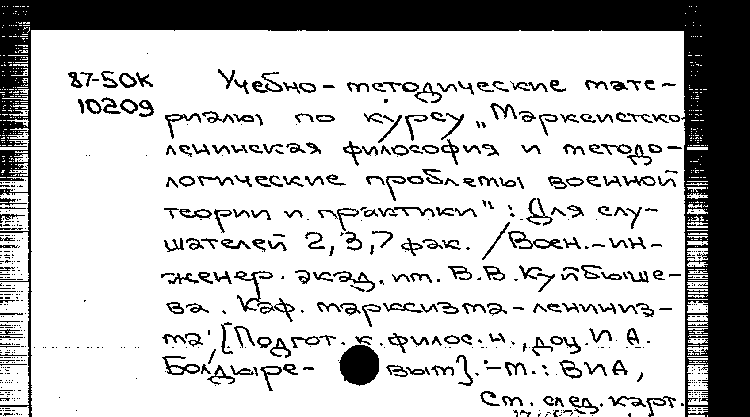 87-50К Учебно-методические мате-
10209 риалы по курсу „Марксистско-
ленинская философия и методо-
логические проблемы военной
теории и практики" : Для слу-
шателей 2,3,7 фак. / Воен.-ин-
женер. акад. им. В.В. Куйбыше-
ва. Каф. марксизма-лениниз-
ма [Подгот. к.филос.н., доц. И.А.
Болдыре- вым]. - М. : ВИА,
См. след. карт.